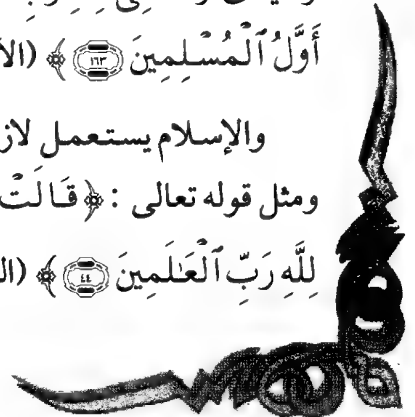 أَوَّلُ ٱلْمُسْلِمِينَ ١٦٣ ﴾ (الأ
والإسلام يستعمل لاز
ومثل قوله تعالى : ﴿ قَالَتْ
لِلَّهِ رَبِّ ٱلْعَـٰلَمِينَ ٤٤ ﴾ (ال